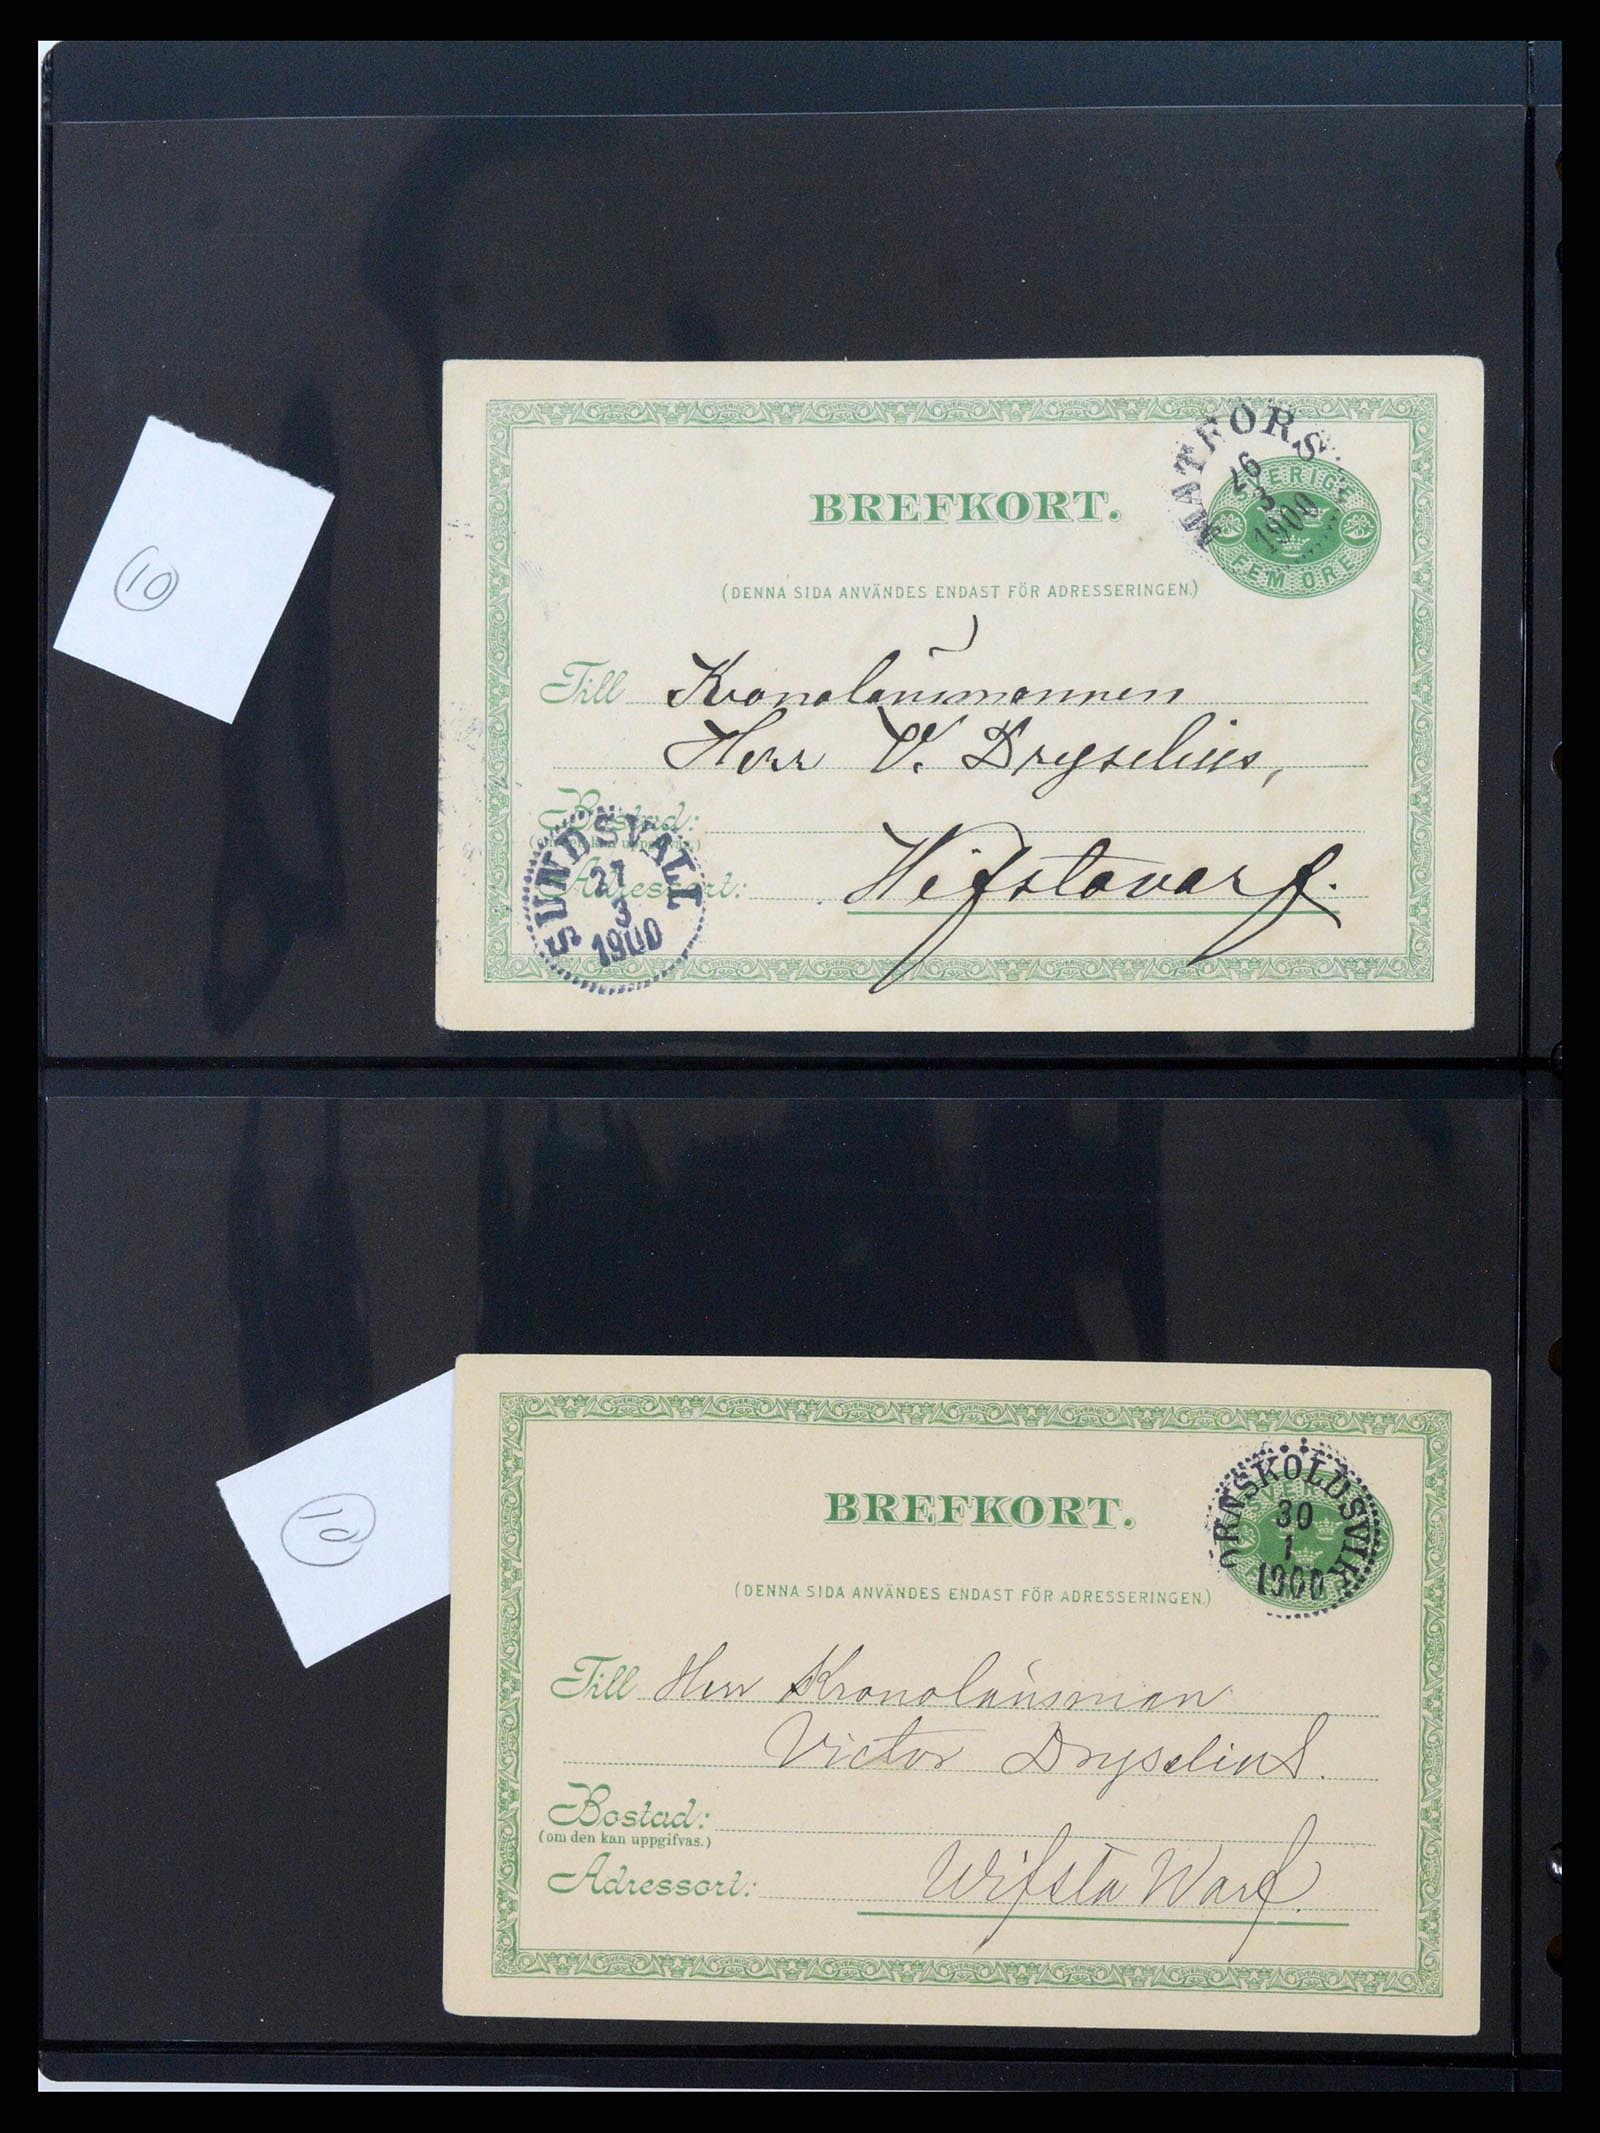 10
BREFKORT.
MATFORS
26
3
1900
SVERIGE
FEM ÖRE
(DENNA SIDA ANVÄNDES ENDAST FÖR ADRESSERINGEN.)
Till Kronolänsmannen
Herr V. Dryselius,
Bostad:
(om den kan uppgifvas.)
Adressort: Wifstavarf.
SUNDSVALL
27
3
1900
10
BREFKORT.
ÖRNSKÖLDSVIK
30
1
1900
(DENNA SIDA ANVÄNDES ENDAST FÖR ADRESSERINGEN.)
Till Herr Kronolänsman
Victor Dryselius.
Bostad:
(om den kan uppgifvas.)
Adressort: Wifsta Warf.